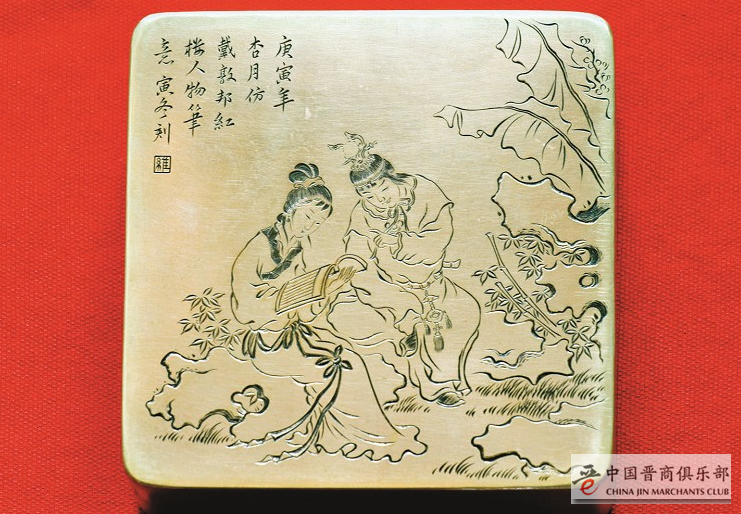 庚寅年
杏月仿
戴敦邦紅
楼人物筆
意 寅冬刻
中国晋商俱乐部
CHINA JIN MARCHANTS CLUB